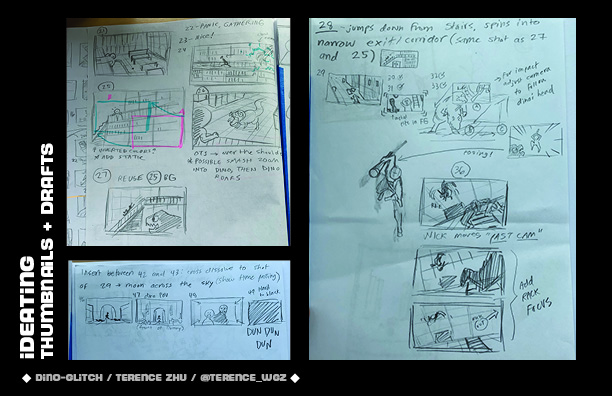 iDEATING
THUMBNAILS + DRAFTS
22-PANIC, GATHERING
23-
24
25
* ADD STATUE
OTS → over the should
* POSSIBLE SMASH ZOOM
INTO DINO, THEN DINO
ROARS
27 REUSE 25 BG
Insert between 42 and 43: cross dissolve to shot
of 29 → moon across the sky (show time passing)
47 dino POV
DUN DUN
DUN
28 - jumps down from stairs, spins into
narrow exit corridor (same shot as 27
and 25)
29
For impact
adjust camera
to follow
dino head
posing!
36
NICK moves "PAST CAM"
Add
RACK
FOCUS
◆ DINO-GLITCH / TERENCE ZHU / @TERENCE_WGZ ◆